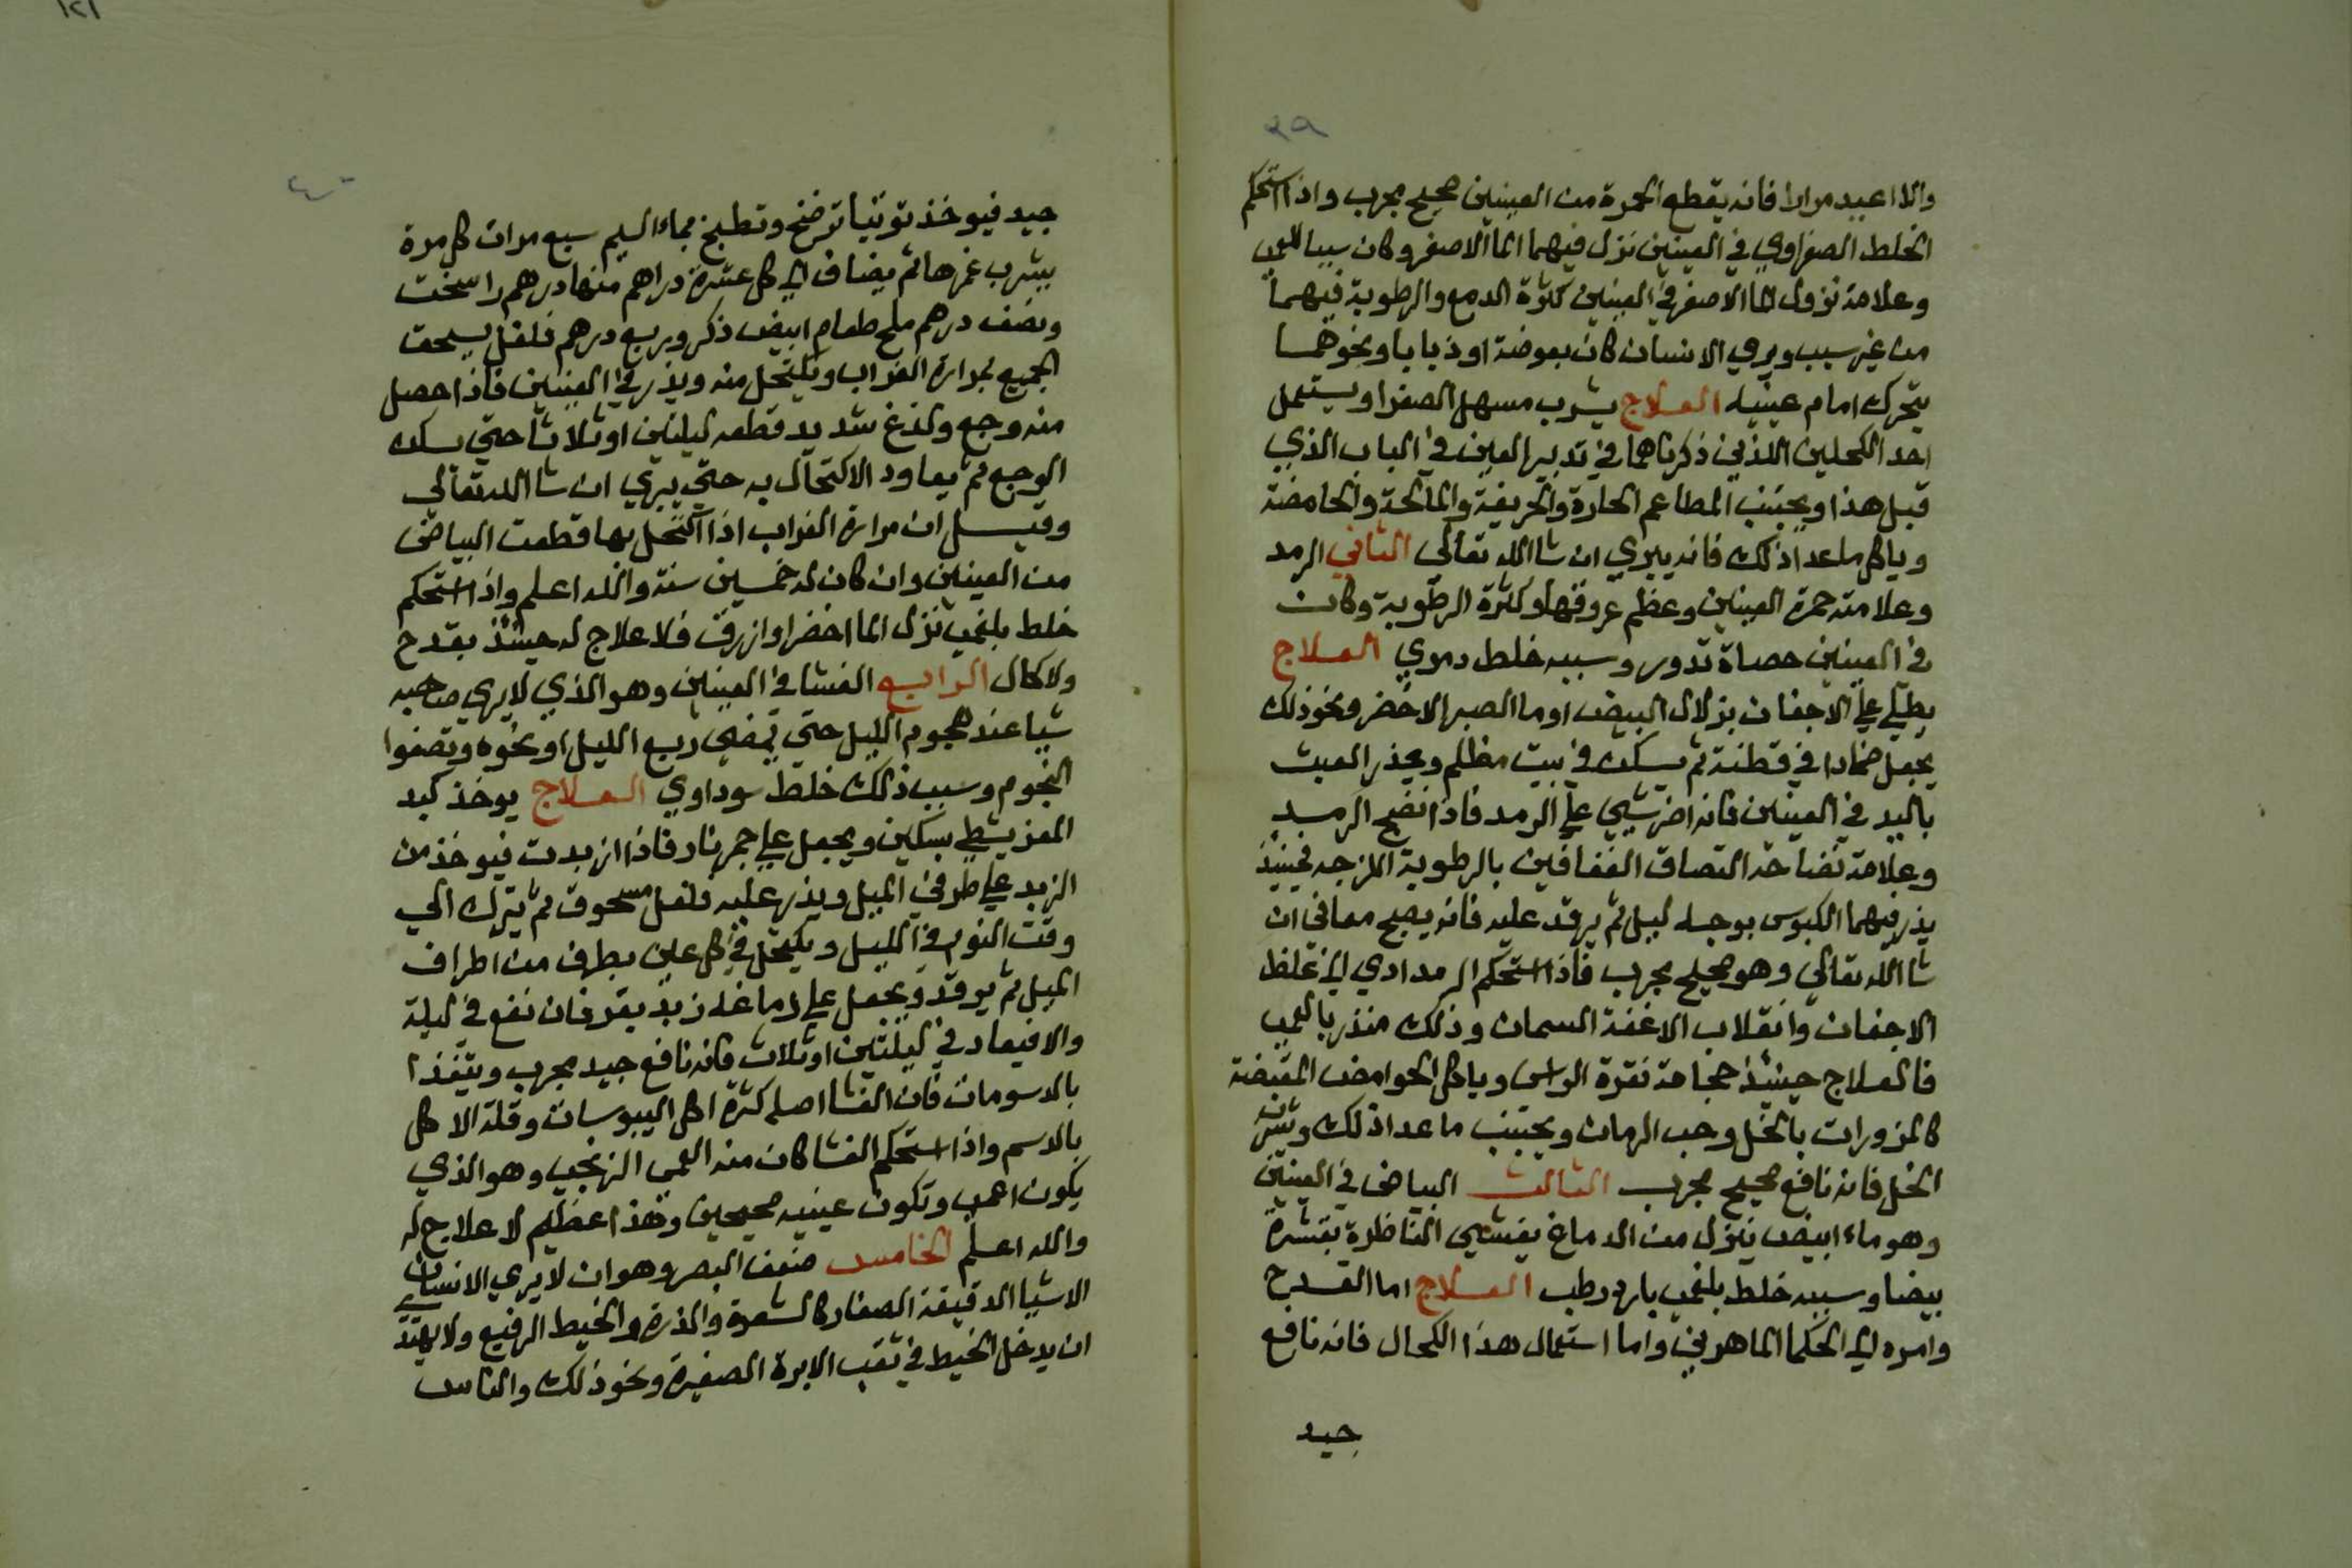 ٣٩
والا اعيد مرارا فانه يقطع الحمرة من العينين صحيح مجرب واذا استحكم
الخلط الصفراوي في العينين نزل فيهما الما الاصفر وكان سببا للعمى
وعلامة نزول الما الاصفر في العينين كثرة الدمع والرطوبة فيهما
من غير سبب ويري الانسان كان بعوضة او ذبابا ونحوهما
يتحرك امام عينيه العلاج يشرب مسهل الصفرا ويستعمل
احد الكحلين اللذين ذكرناهما في تدبير العين في الباب الذي
قبل هذا ويجتنب المطاعم الحارة والحريفة والمالحة والحامضة
وياكل ما عدا ذلك فانه يبري ان شا الله تعالى الثاني الرمد
وعلامته حمرة العينين وعظم عروقها وكثرة الرطوبة وكان
في العينين حصاة تدور وسببه خلط دموي العلاج
يطلي علي الاجفان بزلال البيض او ما الصبر الاخضر ونحو ذلك
يجعل ضمادا في قطنة ثم يسكن في بيت مظلم ويحذر العبث
باليد في العينين فانه اضر شيي علي الرمد فاذا نضج الرمد
وعلامة نضاحته التصاق الغفافين بالرطوبة اللزجه فحينيذ
يذر فيهما الكبوس بوجله ليل ثم يرقد عليه فانه يصبح معافي ان
شا الله تعالي وهو صحيح مجرب فاذا استحكم الرمد ادي الي غلظ
الاجفان وانقلاب الاغفة السمان وذلك منذر بالعمى
فالعلاج حينيذ حجامة نقرة الراس وياكل الحوامض المقبضة
كالمزورات بالخل وحب الرمان ويجتنب ما عدا ذلك وشرب
الخل فانه نافع صحيح مجرب الثالث البياض في العينين
وهو ماء ابيض ينزل من الدماغ يغشي الناظرة بقشرة
بيضا وسببه خلط بلغمي بارد رطب العلاج اما القدح
وامره الي الحكما الماهرين واما استعمال هذا الكحال فانه نافع
جيد
٤٠
جيد فيوخذ توتيا ترضخ وتطبخ بماء السليم سبع مرات كل مرة
يشرب غمرها ثم يضاف الي كل عشرة دراهم منها درهم راسخت
ونصف درهم ملح طعام ابيض ذكر وربع درهم فلفل يسحق
الجميع بمرارة الغراب ويكتحل منه ويذر في العينين فاذا حصل
منه وجع ولذغ شديد قطعه ليلتين او ثلاثا حتي يسكن
الوجع ثم يعاود الاكتحال به حتي يبري ان شا الله تعالي
وقيل ان مرارة الغراب اذا اكتحل بها قطعت البياض
من العينين وان كان له خمسين سنة والله اعلم واذا استحكم
خلط بلغمي نزل الما اخضر او ازرق فلا علاج له حينيذ بقدح
ولا كحال الرابع الغشا في العينين وهو الذي لا يري صاحبه
شيا عند هجوم الليل حتي يمضي ربع الليل او نحوه وتصفوا
النجوم وسبب ذلك خلط سوداوي العلاج يوخذ كبد
المعز يشطي بسكين ويجعل علي جمر نار فاذا ازبدت فيوخذ من
الزبد علي طرفي الميل ويذر عليه فلفل مسحوق ثم يترك الي
وقت النوم في الليل ويكتحل في كل عين بطرف من اطراف
الميل ثم يرقد ويجعل علي دماغه زبد بقر فان نفع في ليلة
والا فيعاد في ليلتين او ثلاث فانه نافع جيد مجرب ويتغذا
بالدسومات فان الغشا اصله كثرة اكل اليبوسات وقلة الاكل
بالدسم واذا استحكم الغشا كان منه العمي الزنجبي وهو الذي
يكون اعمى وتكون عينيه صحيحين وهذا عظيم لا علاج له
والله اعلم الخامس ضعف البصر وهو ان لا يري الانسان
الاشيا الدقيقة الصغار كالشعرة والذرة والخيط الرفيع ولا يهتدي
ان يدخل الخيط في ثقب الابرة الصغيرة ونحو ذلك والناس